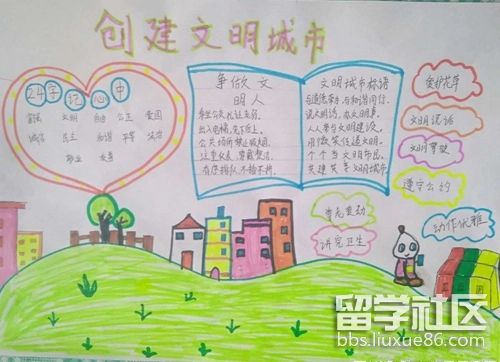 创建文明城市
24字记心中
富强 文明 自由 公正 爱国
诚信 民主 和谐 平等 法治
敬业 友善
争做文
明人
出入电梯,先下后上。
公共场所禁止吸烟。
注重仪表,穿戴整洁。
有序排队,不拍不挤。
文明城市标语
与道德牵手与和谐同行。
说文明话,办文明事。
人人参与文明建设。
用微笑传递文明。
个个当文明市民。
共建共享文明城市
爱护花草
文明说话
文明驾驶
遵守公约
尊老爱幼
动作优雅
讲究卫生
留学社区
bbs.liuxue86.com